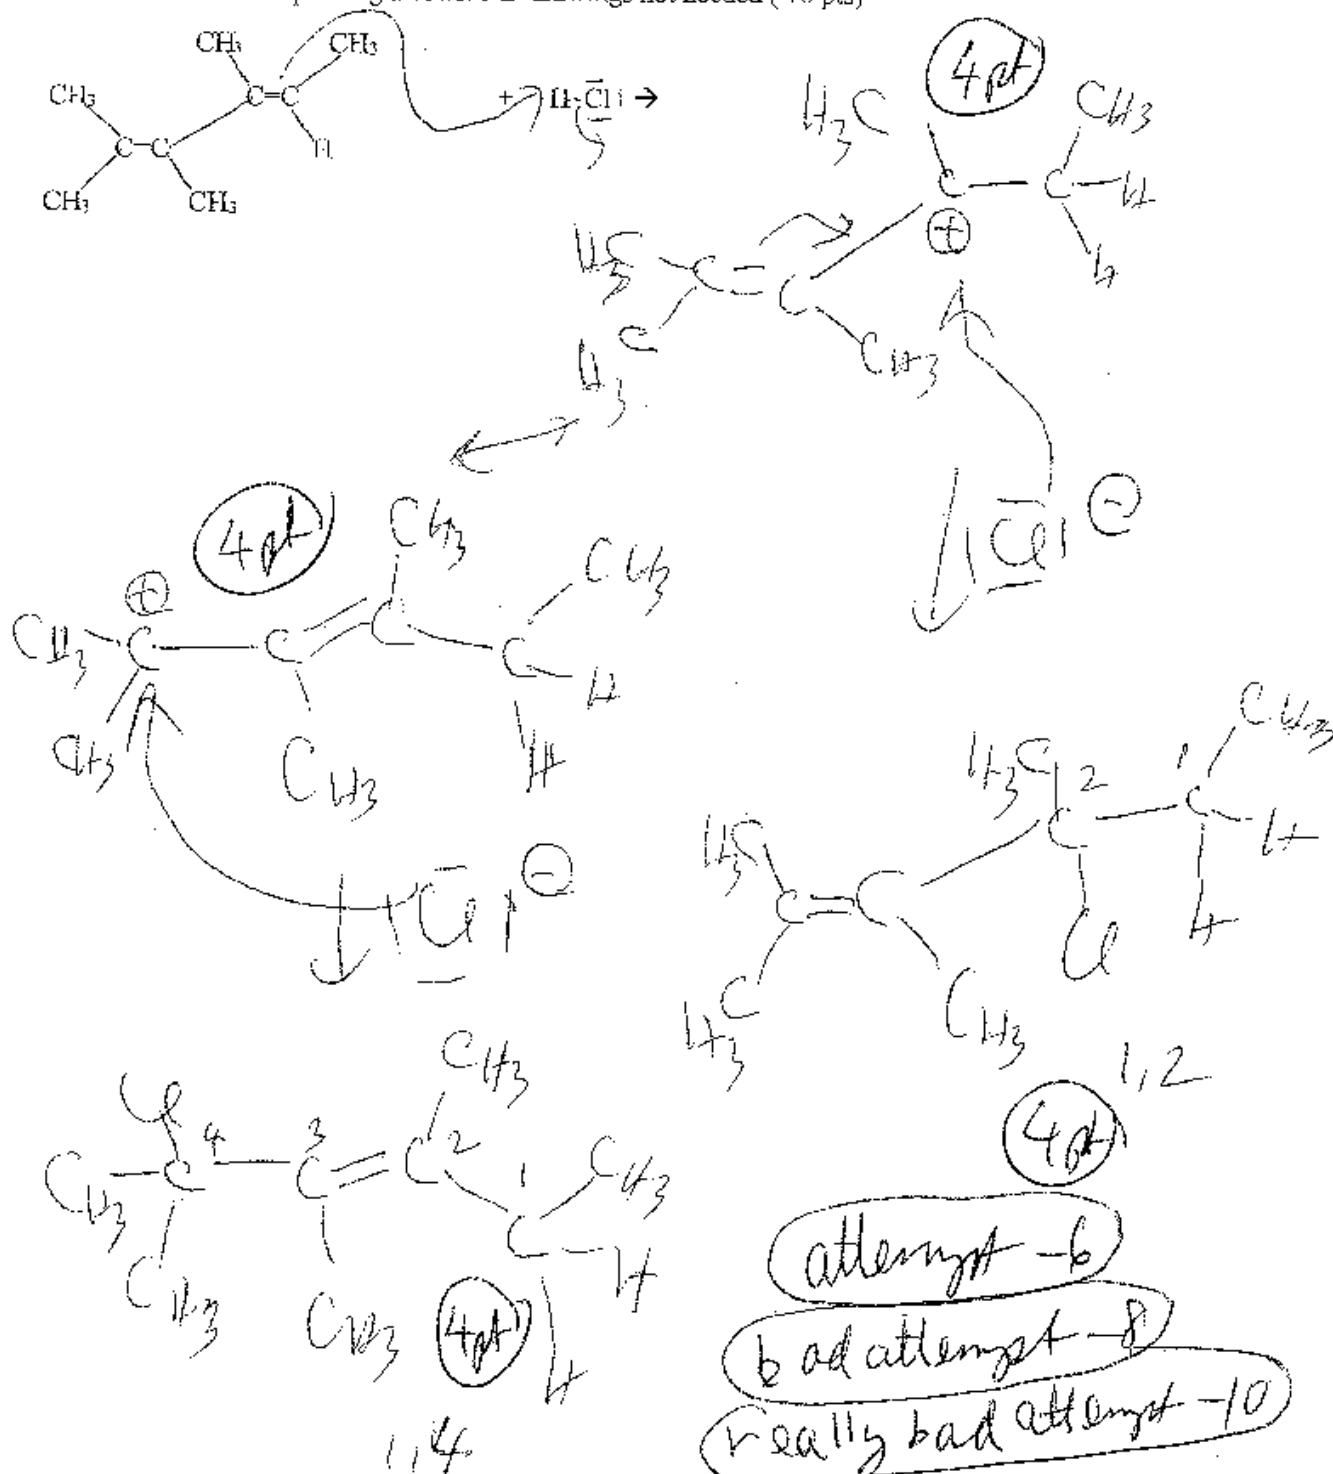 not needed (
pts)
CH₃ CH₃
CH₃ C=C + H-Cl →
C=C H
CH₃ CH₃
4pt
H₃C CH₃
C C H
⊕
H₃C C=C H
H₃C CH₃
Cl ⊖
4pt CH₃ CH₃
⊕
CH₃ C C C C H
CH₃ CH₃ H
Cl ⊖
H₃C 2 1 CH₃
C C H
H₃C C=C Cl H
H₃C CH₃
1,2
4pt
Cl CH₃
4 3 2 1
CH₃ C C=C CH₃
CH₃ CH₃ C H
4pt H
1,4
attempt -6
bad attempt -8
really bad attempt -10